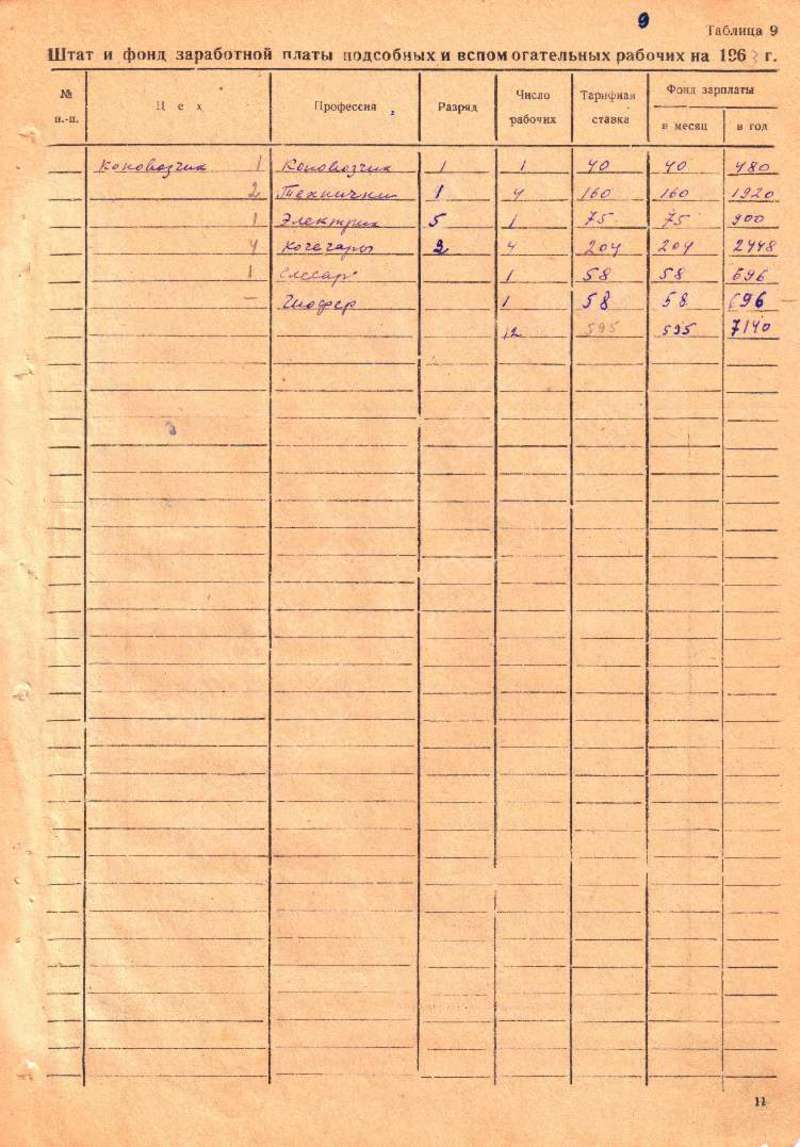 9
Таблица 9
Штат и фонд заработной платы подсобных и вспомогательных рабочих на 196 г.
№ п.-п. Цех Профессия Разряд Число рабочих Тарифная ставка Фонд зарплаты
в месяц в год
Коновозчик 1 Коновозчик 1 1 40 40 480
2 Технички 1 4 160 160 1920
1 Электрик 5 1 75 75 900
4 Кочегары 3 4 204 204 2448
1 Слесар 1 58 58 696
— Шофер 1 58 58 696
12 595 595 7140
11